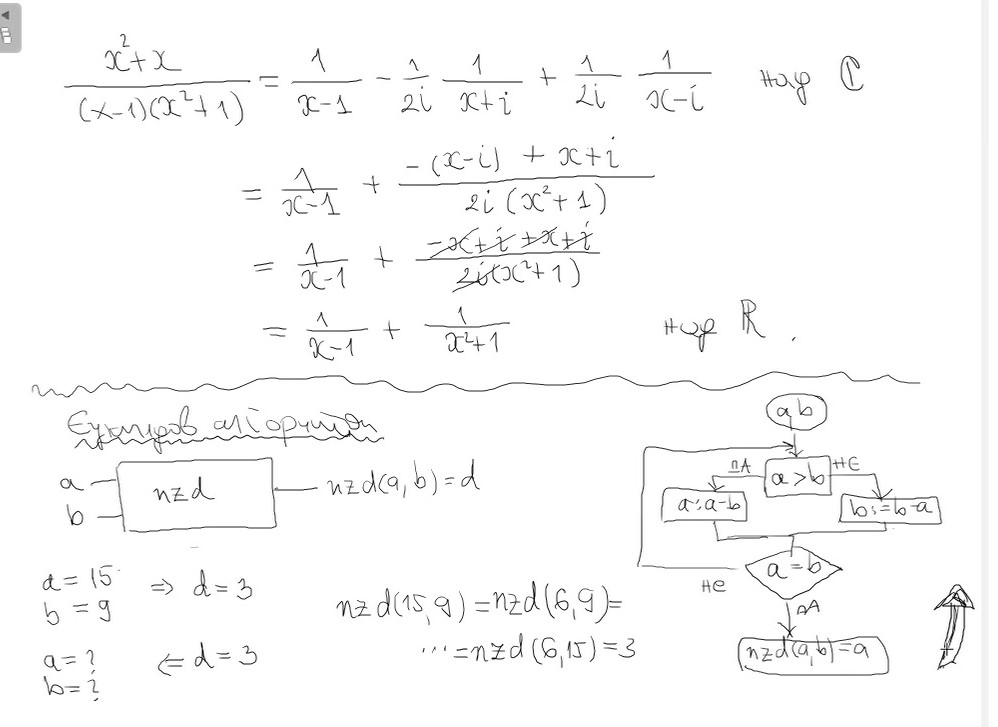 (x²+x)/((x-1)(x²+1)) = 1/(x-1) - 1/(2i) 1/(x+i) + 1/(2i) 1/(x-i) над ℂ
= 1/(x-1) + (-(x-i) + x+i)/(2i(x²+1))
= 1/(x-1) + (-x+i+x+i)/(2i(x²+1))
= 1/(x-1) + 1/(x²+1) над ℝ.
Еуклидов алгоритам
a
b
nzd
nzd(a,b)=d
a=15
b=9
⇒ d=3
a=?
b=?
⇐ d=3
nzd(15,9)=nzd(6,9)=
...=nzd(6,15)=3
a,b
a>b
ДА
НЕ
a:a-b
b:=b-a
a=b
не
ДА
nzd(a,b)=a